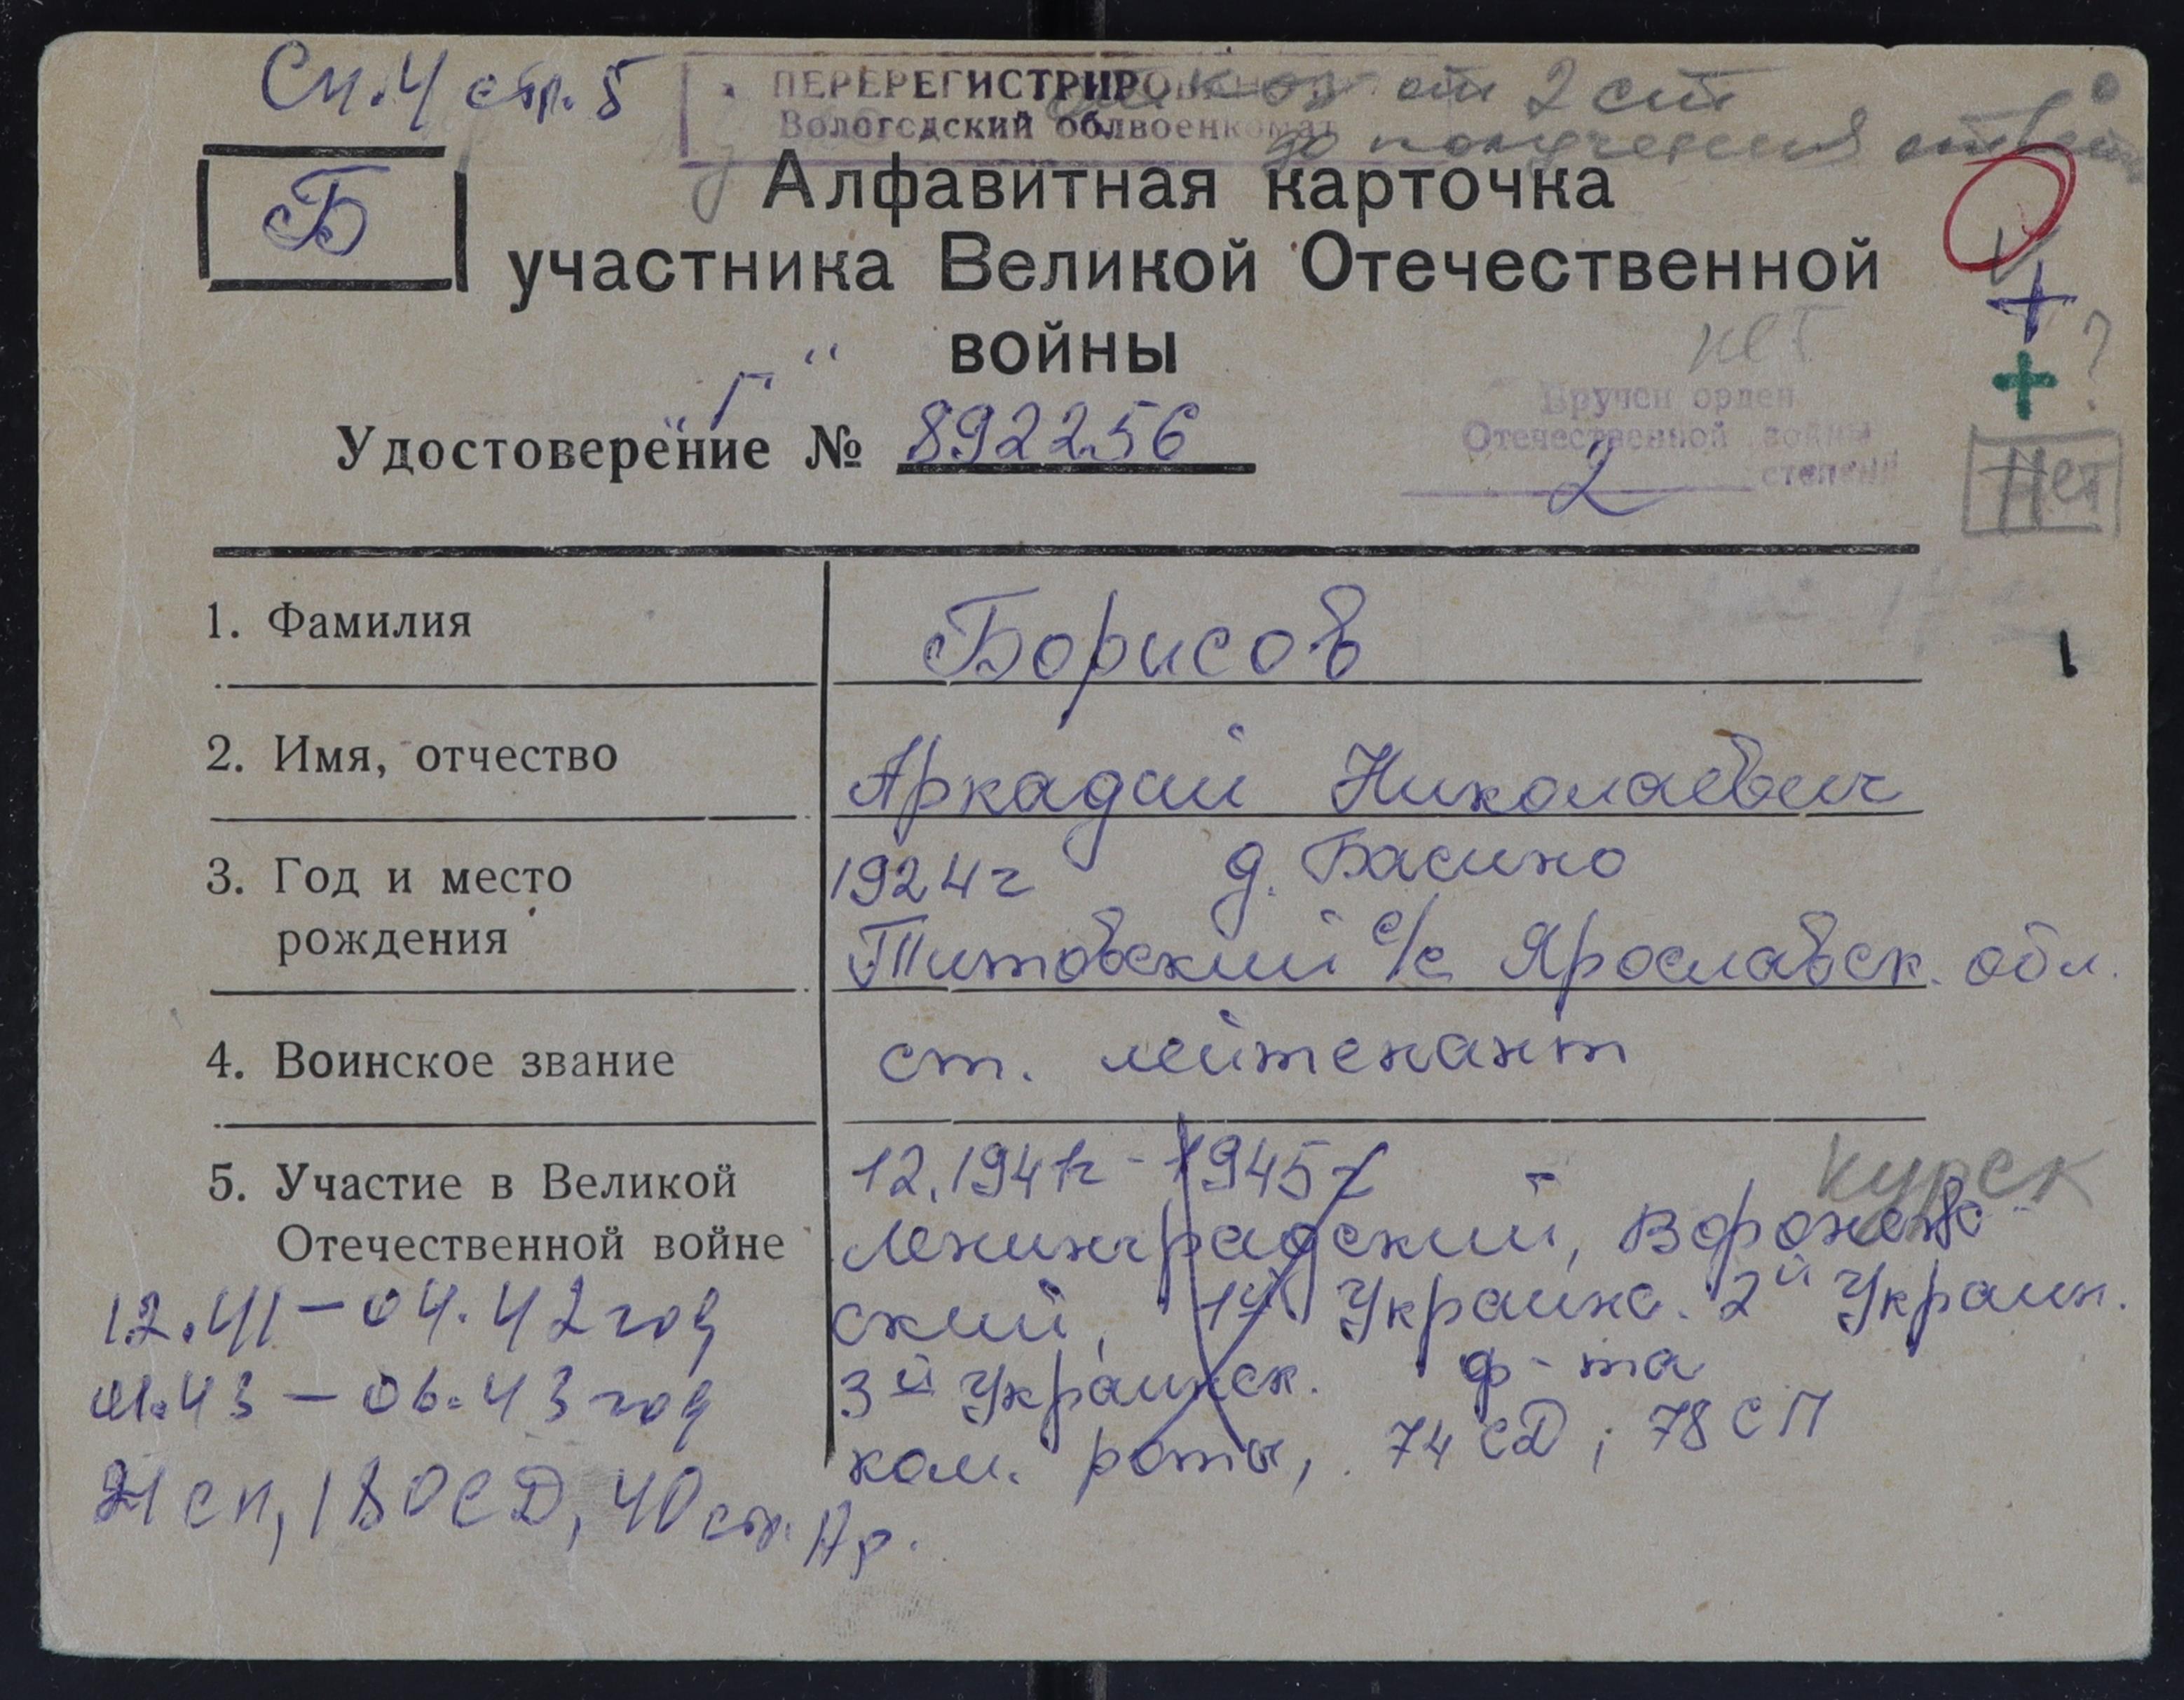 См. 4 стр. 5
ПЕРЕРЕГИСТРИРОВАН
Вологодский облвоенкомат
от 2 ст
до получения ответа
Б
Алфавитная карточка
участника Великой Отечественной
войны
"Г"
нет
?
Удостоверение № 892256
Вручен орден
Отечественной войны
2 степени
Нет
1. Фамилия Борисов
2. Имя, отчество Аркадий Николаевич
3. Год и место 1924 г д. Басино
рождения Титовский с/с Ярославск. обл.
4. Воинское звание ст. лейтенант
5. Участие в Великой 12.1941г - 1945г
Курск
Отечественной войне Ленинградский, Воронеж
12.41 – 04.42 год ский, 1й Украинс. 2й Украин.
01.43 – 06.43 год 3й Украинск. ф-та
ком. роты, 74 СД; 78 СП
21 сп, 180 СД, 40 Ар.